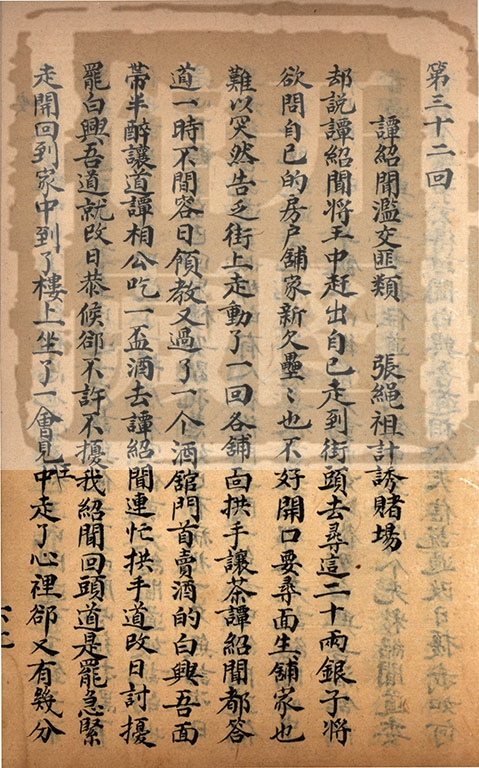 第三十二回
譚紹聞濫交匪類　張繩祖計誘賭場
却説譚紹聞將王中赶出自已走到街頭去尋這二十兩銀子將
欲問自已的房户舖家新欠壘〻也不好開口要尋面生舖家也
難以突然告乏街上走動了一回各舖面拱手讓茶譚紹聞都答
道一時不閒容日領教又過了一个酒舘門首賣酒的白興吾面
帶半醉讓道譚相公吃一盃酒去譚紹聞連忙拱手道改日討擾
罷白興吾道就改日恭候郤不許不擾我紹聞回頭道是罷急緊
走開回到家中到了樓上坐了一會見王中走了心裡郤又有幾分